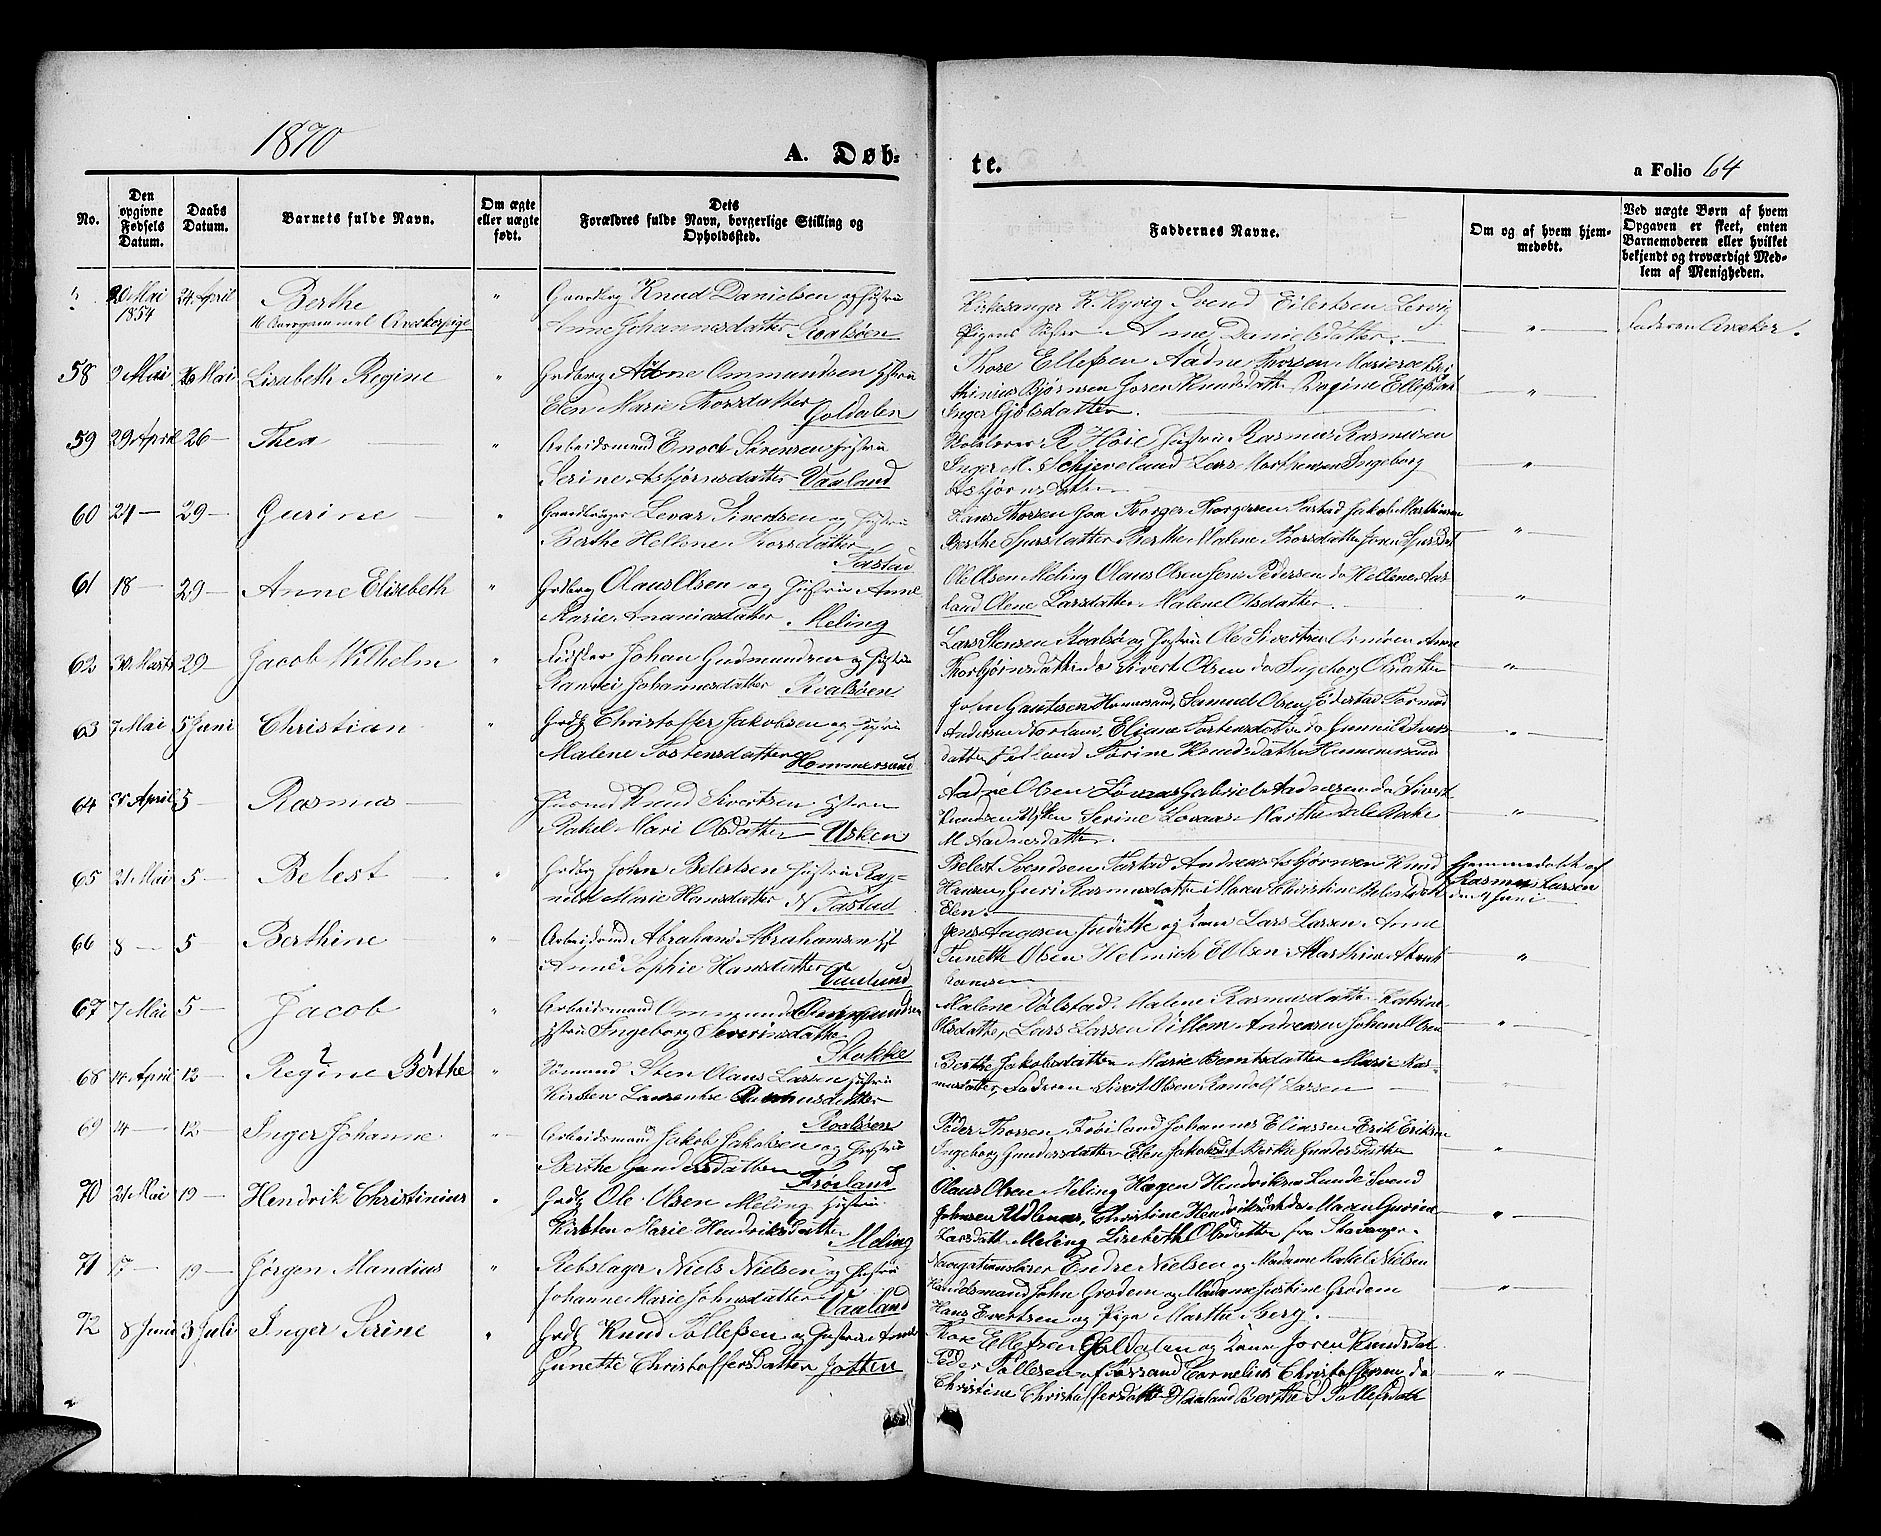 1870
A. Døb-
te.
a Folio 64
No.
Den opgivne Fødsels Datum.
Daabs Datum.
Barnets fulde Navn.
Om ægte eller uægte født.
Dets Forældres fulde Navn, borgerlige Stilling og Opholdssted.
Faddernes Navne.
Om og af hvem hjemmedøbt.
Ved uægte Børn af hvem Opgaven er skeet, enten Barnemoderen eller hvilket bekjendt og troværdigt Medlem af Menigheden.
" 20 Mai 1854 24 April Berthe " Gaardbrg Knud Danielsen og Hustru
16 Aar gammel Qvækerpige
Anne Johannesdatter Roalsøen
Kirkesanger K. Hyvig Svend Eilertsen Lervig
Pigens Søster Anne Danielsdatter. " Faderen Qvæker.
58 9 Mai 26 Mai Lisabeth Regine " Grdbrg Adne Ommundsen Hstru
Elen Marie Thorsdatter Goldalen
Thore Ellefsen Aadne Thorsen
thinius Bjørnsen Joren Knudsdattr Regine Ellefsdat "
Inger Gjølsdatter.
59 29 April 26 — Thea " Arbeidsmand Enoch Sørensen Hstru
Serine Asbjørnsdatter Vaaland
R Høie Hustru Rasmus Rasmussen
Inger M. Skjeveland Lars Morthensen Ingeborg "
Asbjørnsdatter
60 24 — 29 — Gurine " Gaardbruger Levar Sivertsen og Hstru
Berthe Hellene Thorsdatter
Tastad
Hans Thorsen Goa Thorger Torgersen Tastad Jakob Marthinsen
Berthe Malene Thorsdatter "
61 18 — 29 — Anne Elisebeth " Grdbrg Olaus Olsen og Hustru Anne
Marie Ananiasdatter Meling
Ole Olsen Meling Olaus Olsen Jens Pedersen do Hellene Aas-
land Olene Larsdatter Malene Olsdatter. "
62 30 Marts 29 — Jacob Wilhelm " Fidsker Johan Gudmundsen og Hstru
Ranvei Johannesdatter Roalsøen
Lars Stensen Roalsø og Hustru Ole Sivertsen Ormøen Anne
Thorbjørnsdatter do Sivert Olsen do Ingeborg Olsdatter "
63 7 Mai 5 Juni Christian " Grdbg Christoffer Jakobsen og Hustru
Malene Tostensdatter Hommersand
John Gautesen Hommersand, Samuel Olsen Jødestad Tormod
Andersen Norland, Eliane Tostensdatter do Gunnild Iversdatter "
datter Setland Torine Knudsdatter Hommersand
64 30 April 5 — Rasmus Husmd Knud Sivertsen Hstru
Rakel Mari Olsdatter Usken
Aadne Olsen Lovaas Gabriel Aadnesen do Sivert
Knudsen Usken Serine Lovaas Marthe Dale Rake "
M Aadnesdatter.
65 21 Mai 5 — Belest " Grdbrg John Belestsen Hustru Rag-
nild Marie Hansdatter N Tastad
Belest Svendsen Tastad Andreas Asbjørnsen Knud
Hansen, Guri Rasmusdatter Maren Christine Belestsdatt
Elen.
Hjemmedøbt af
Rasmus Larsen
den 4 Juni
66 8 — 5 Berthine " Arbeidsmd Abraham Abrahamsen Hst
Anne Sophie Hansdatter
Vaaland
Jens Aagesen Juditte og Kone Lars Larsen Anne
Tunette Olsen Helmich Ellsen Marthin Abrah "
hamsen
67 7 Mai 5 — Jacob " Arbeidsmand Ommund Ommundsen
Hstru Ingeborg Severinsdatter
Stokke
Malene Vølstad, Malene Rasmusdatter Katrine
Olsdatter, Lars Larsen Villem Andreasen Johan Olsen "
68 14 April 12 — Regine Berthe " Sømand Sten Olaus Larsen Hstru
Kirsten Laurentse Rasmusdatter
Roalsøen
Berthe Jakobsdatter Marie Berntsdatter Marie Ras-
musdatter, Faderen Sivert Olsen Randolf Larsen
69 14 — 12 — Inger Johanne Arbeidsmand Jakob Jakobsen og Hustru
Berthe Gundersdatter Frøiland
Peder Thorsen Frøiland Johannes Eliassen Erik Eriksen
Ingeborg Gundersdatter Elen Jakobsdt Berthe Gundersdatter "
70 21 Mai 19 — Hendrik Christinius " Grdbg Ole Olsen Meling Hustru
Kirsten Marie Hendriksdatter
Meling
Olaus Olsen Meling Hagen Hendriksen Lunde Svend
Johnsen Christine Hendriksdatt do Maren Gurine "
Larsdatt Meling Lisebeth Olsdatter fra Stavanger.
71 17 — 19 — Jørgen Mandius " Rebslager Niels Nielsen og Hustru
Johanne Marie Johnsdatter Vaaland
Navigationslærer Endre Nielsen og Madame Rakel Nielsen
Handelsmand John Grødem og Madame Justine Grødem "
Hans Evertsen og Pige Marthe Berg.
72 8 Juni 3 Juli Inger Serine " Grdbg Knud Tollefsen og Hustru Anne
Gunette Christoffersdatter Jotten
Thore Ellefsen Goldalen og Kone Joren Knudsdat
Peder Tollefsen Cornelius Christoffersen do "
Christine Christoffersdatt Haaland Berthe S Tollefsdatt